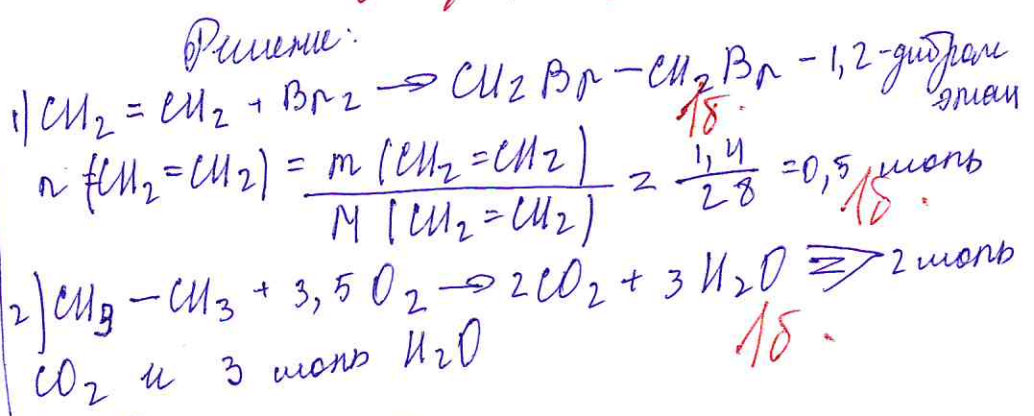 Решение:
1) CH2 = CH2 + Br2 → CH2Br – CH2Br – 1,2-дибром
этан
1б.
n (CH2=CH2) = m (CH2=CH2) / M (CH2=CH2) = 1,4 / 28 = 0,5 моль
1б.
2) CH3 – CH3 + 3,5 O2 → 2CO2 + 3 H2O ⇒ 2 моль
CO2 и 3 моль H2O
1б.